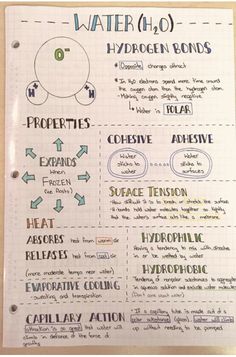 WATER (H₂O)
HYDROGEN BONDS
O⁻
H⁺ H⁺
• Opposite charges attract
• In H₂O electrons spend more time around
the oxygen atom than the hydrogen atom.
- Making oxygen slightly negative
↳ Water is POLAR
PROPERTIES
EXPANDS
When
FROZEN
(ice floats)
COHESIVE ADHESIVE
Water
sticks to
water
Water
sticks to
surfaces
SUFACE TENSION
How difficult it is to break or stretch the surface
H bonds hold water molecules together so tightly
that the water's surface acts like a membrane
HEAT
ABSORBS heat from warm air
RELEASES heat from cool air
(more moderate temps near water)
EVAPORATIVE COOLING
- sweating and transpiration
HYDROPHILIC
Having a tendency to mix with, dissolve
in or be wetted by water
HYDROPHOBIC
Tendency of nonpolar substances to aggregate
in aqueous solution and exclude water molecules
CAPILLARY ACTION
attraction is so great that water will
climb in defiance of the force of
gravity
• If a capillary tube is made out of a
polar substance (glass), water will climb
up without needing to be pumped